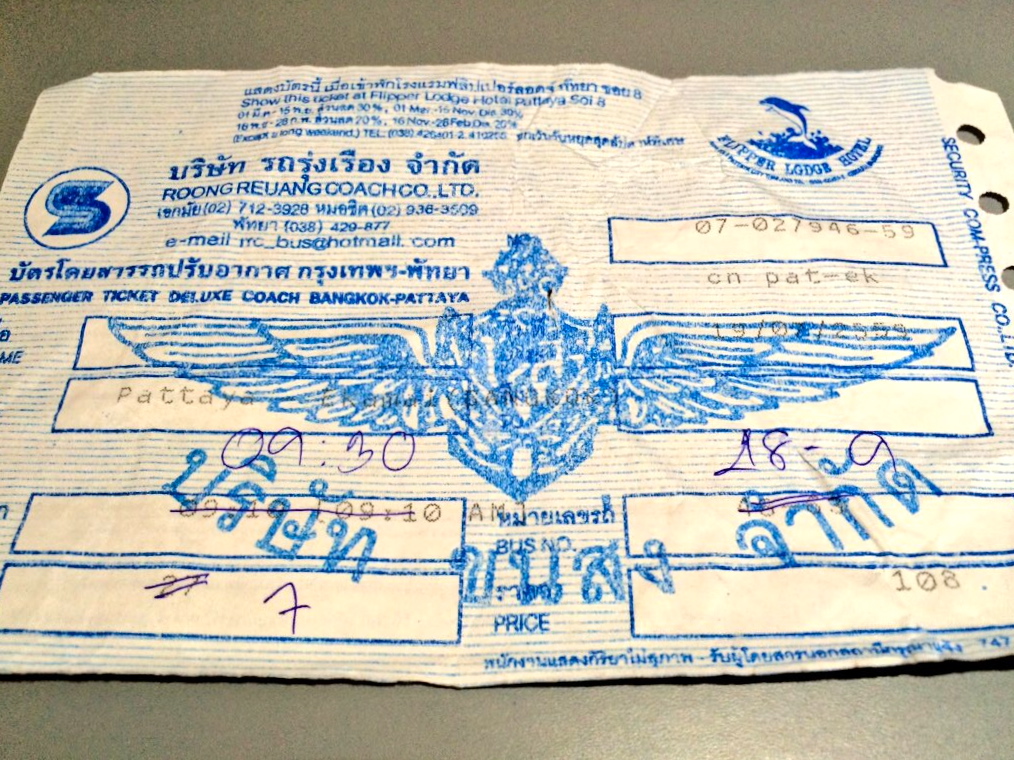 แสดงบัตรนี้ เมื่อเข้าพักโรงแรมฟลิปเปอร์ลอดจ์ พัทยา ซอย 8
Show this ticket at Flipper Lodge Hotel Pattaya Soi 8
01 มี.ค.-15 พ.ย. ส่วนลด 30%, 01 Mar.-15 Nov. Dis. 30%
16 พ.ย.-28 ก.พ. ส่วนลด 20%, 16 Nov.-28 Feb. Dis. 20%
(Except a long weekend.) TEL: (038) 426401-2,
FLIPPER LODGE HOTEL
บริษัท รถรุ่งเรือง จำกัด
ROONG REUANG COACH CO., LTD.
เอกมัย (02) 712-3928 หมอชิต (02) 936-3509
พัทยา (038) 429-877
e-mail rrc_bus@hotmail.com
บัตรโดยสารรถปรับอากาศ กรุงเทพฯ-พัทยา
PASSENGER TICKET DELUXE COACH BANGKOK-PATTAYA
07-027946-59
cn pat-ek
Pattaya
09:30
18-9
09:10
AM
หมายเลขรถ
BUS NO.
7
108
PRICE
บริษัท ขนส่ง จำกัด
พนักงานแสดงกิริยาไม่สุภาพ - รับผู้โดยสารนอกสถานีกรุณาแจ้ง
SECURITY COM-PRESS CO., LTD.